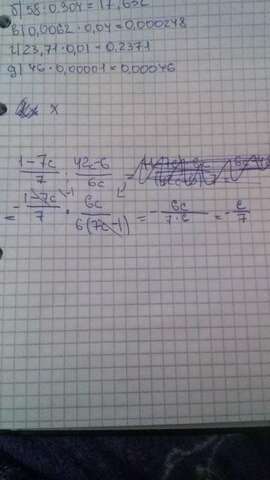 б) 58·0,304=17,632
в) 0,0062·0,04=0,000248
г) 23,71·0,01=0,2371
д) 46·0,00001=0,00046
x
1-7c/7 : 42c-6/6c =
= - 1-7c -1/7 · 6c/6(7c-1) = - 6c/7·6 = - c/7